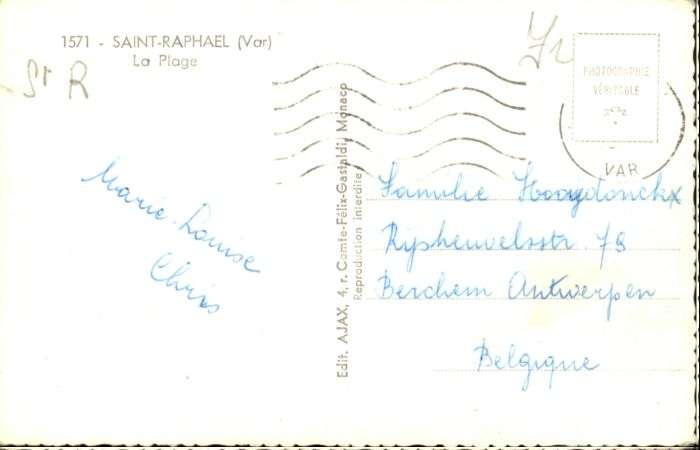 1571 - SAINT-RAPHAEL (Var)
La Plage
St R
Marie-Louise
Chris
Edit. AJAX, 4, r. Comte-Félix-Gastaldi, Monaco
Reproduction interdite
PHOTOGRAPHIE
VÉRITABLE
VAR
Familie Hooydonckx
Rijsheuvelsstr. 78
Berchem Antwerpen
Belgique